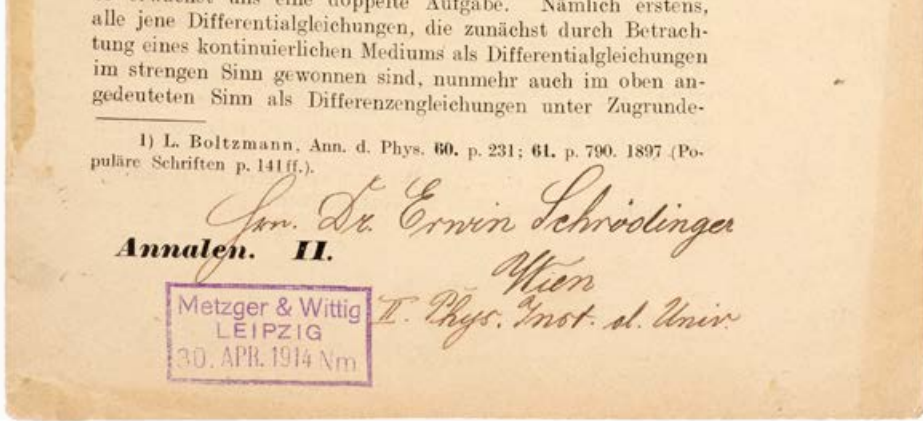 uns eine doppelte Aufgabe. Nämlich erstens,
alle jene Differentialgleichungen, die zunächst durch Betrach-
tung eines kontinuierlichen Mediums als Differentialgleichungen
im strengen Sinn gewonnen sind, nunmehr auch im oben an-
gedeuteten Sinn als Differenzengleichungen unter Zugrunde-
1) L. Boltzmann, Ann. d. Phys. 60. p. 231; 61. p. 790. 1897 (Po-
puläre Schriften p. 141 ff.).
Hrn. Dr. Erwin Schrödinger
Annalen. II.
Wien
II. Phys. Inst. d. Univ.
Metzger & Wittig
LEIPZIG
30. APR. 1914 Nm.